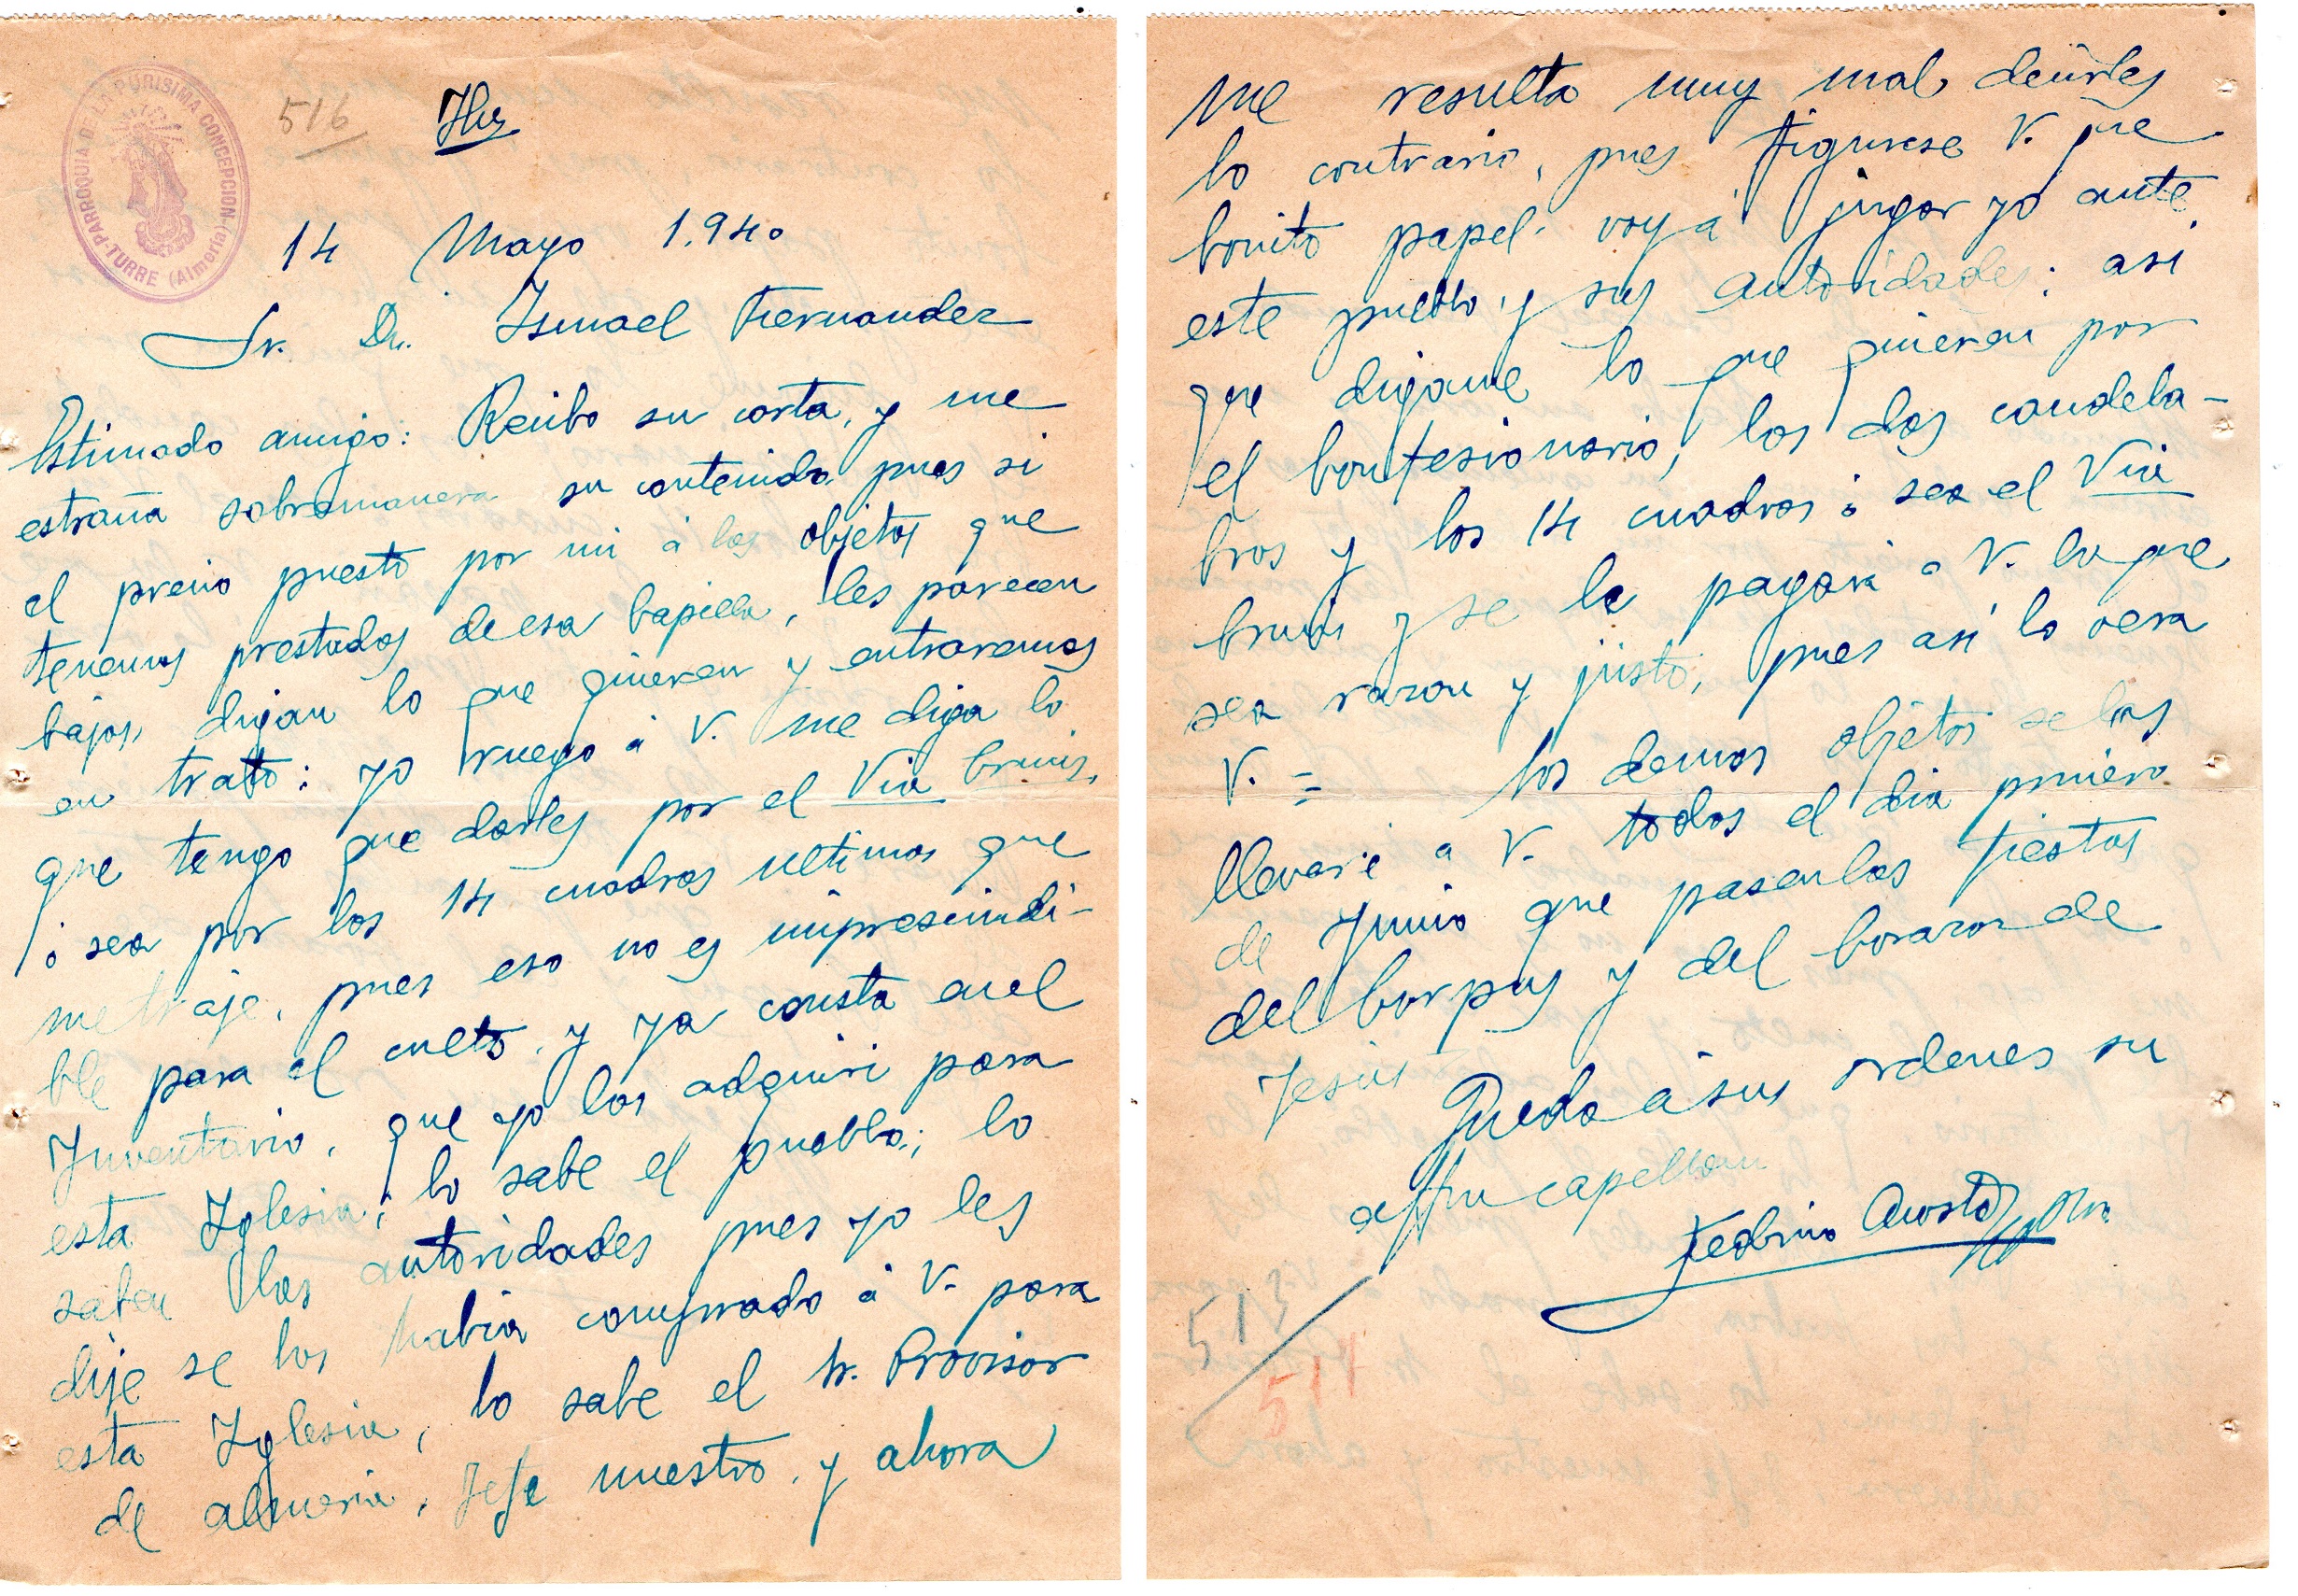 PARROQUIA DE LA PURISIMA CONCEPCION-TURRE (Almería)
516
Jhs
14 Mayo 1.940
Sr. Dn. Ismael Fernandez
Estimado amigo: Recibo su carta, y me
estraña sobremanera su contenido, pues si
el precio puesto por mi á los objetos que
tenemos prestados de esa Capilla, les parecen
bajos, digan lo que quieren y entraremos
en trato: yo ruego á V. me diga lo
que tengo que darles por el Via Crucis,
ó sea por los 14 cuadros ultimos que
me traje, pues eso no es imprescindi-
ble para el culto, y ya consta en el
Inventario, que yo los adquiri para
esta Iglesia; lo sabe el pueblo; lo
saben las autoridades pues yo les
dije se los habia comprado á V. para
esta Iglesia, lo sabe el Sr. Provisor
de Almeria, Jefe nuestro, y ahora
me resulta muy mal decirles
lo contrario, pues figurese V. que
bonito papel voy á jugar yo ante
este pueblo y sus autoridades; asi
que digame lo que quieren por
el Confesionario, los dos candela-
bros y los 14 cuadros ó sea el Via
Crucis y se le pagará a V. lo que
sea razon y justo, pues asi lo vera
V. = los demas objetos se los
llevaré a V. todos el dia primero
de Junio que pasen las fiestas
del Corpus y del Corazon de
Jesus
Quedo á sus ordenes su
affmo capellan
Federico Acosta
513
514